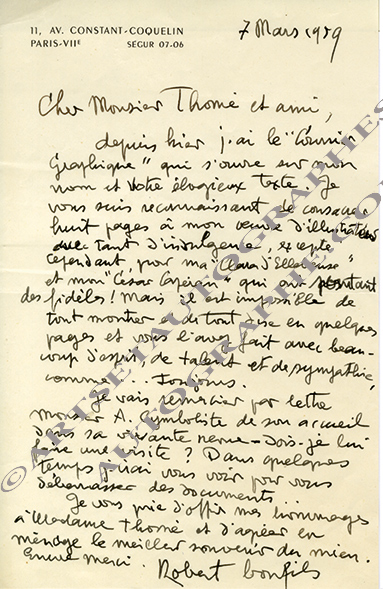 11, AV. CONSTANT-COQUELIN
PARIS-VIIE SÉGUR 07-06
7 Mars 1959
Cher Monsieur Thomé et ami,
depuis hier j'ai le "Courrier
Graphique" qui s'ouvre sur mon
nom et votre élogieux texte. Je
vous suis reconnaissant de consacrer
huit pages à mon œuvre d'illustrateur
avec tant d'indulgence, excepté
cependant, pour ma "Clara d'Ellébeuse"
et mon "César Capéran" qui ont pourtant
des fidèles! Mais il est impossible de
tout montrer et de tout dire en quelques
pages et vous l'avez fait avec beau-
coup d'esprit, de talent et de sympathie,
comme... toujours.
Je vais remercier par lettre
Monsieur A. Cymboliste de son accueil
dans sa vivante revue - Dois-je lui
faire une visite? Dans quelques
temps j'irai vous voir pour vous
débarrasser des documents.
Je vous prie d'offrir mes hommages
à Madame Thomé et d'agréer en
ménage le meilleur souvenir du mien.
Encore merci. Robert Bonfils
© ARTS ET AUTOGRAPHES
ARTSETAUTOGRAPHES.COM